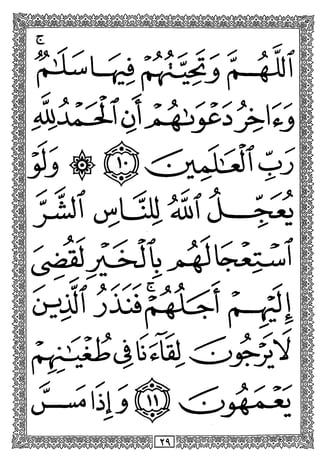 ٱللَّهُمَّ وَتَحِيَّتُهُمۡ فِيهَا سَلَٰمٞۚ
وَءَاخِرُ دَعۡوَىٰهُمۡ أَنِ ٱلۡحَمۡدُ لِلَّهِ
رَبِّ ٱلۡعَٰلَمِينَ ١٠ ۞ وَلَوۡ
يُعَجِّلُ ٱللَّهُ لِلنَّاسِ ٱلشَّرَّ
ٱسۡتِعۡجَالَهُم بِٱلۡخَيۡرِ لَقُضِيَ
إِلَيۡهِمۡ أَجَلُهُمۡۖ فَنَذَرُ ٱلَّذِينَ
لَا يَرۡجُونَ لِقَآءَنَا فِي طُغۡيَٰنِهِمۡ
يَعۡمَهُونَ ١١ وَإِذَا مَسَّ
٢٩